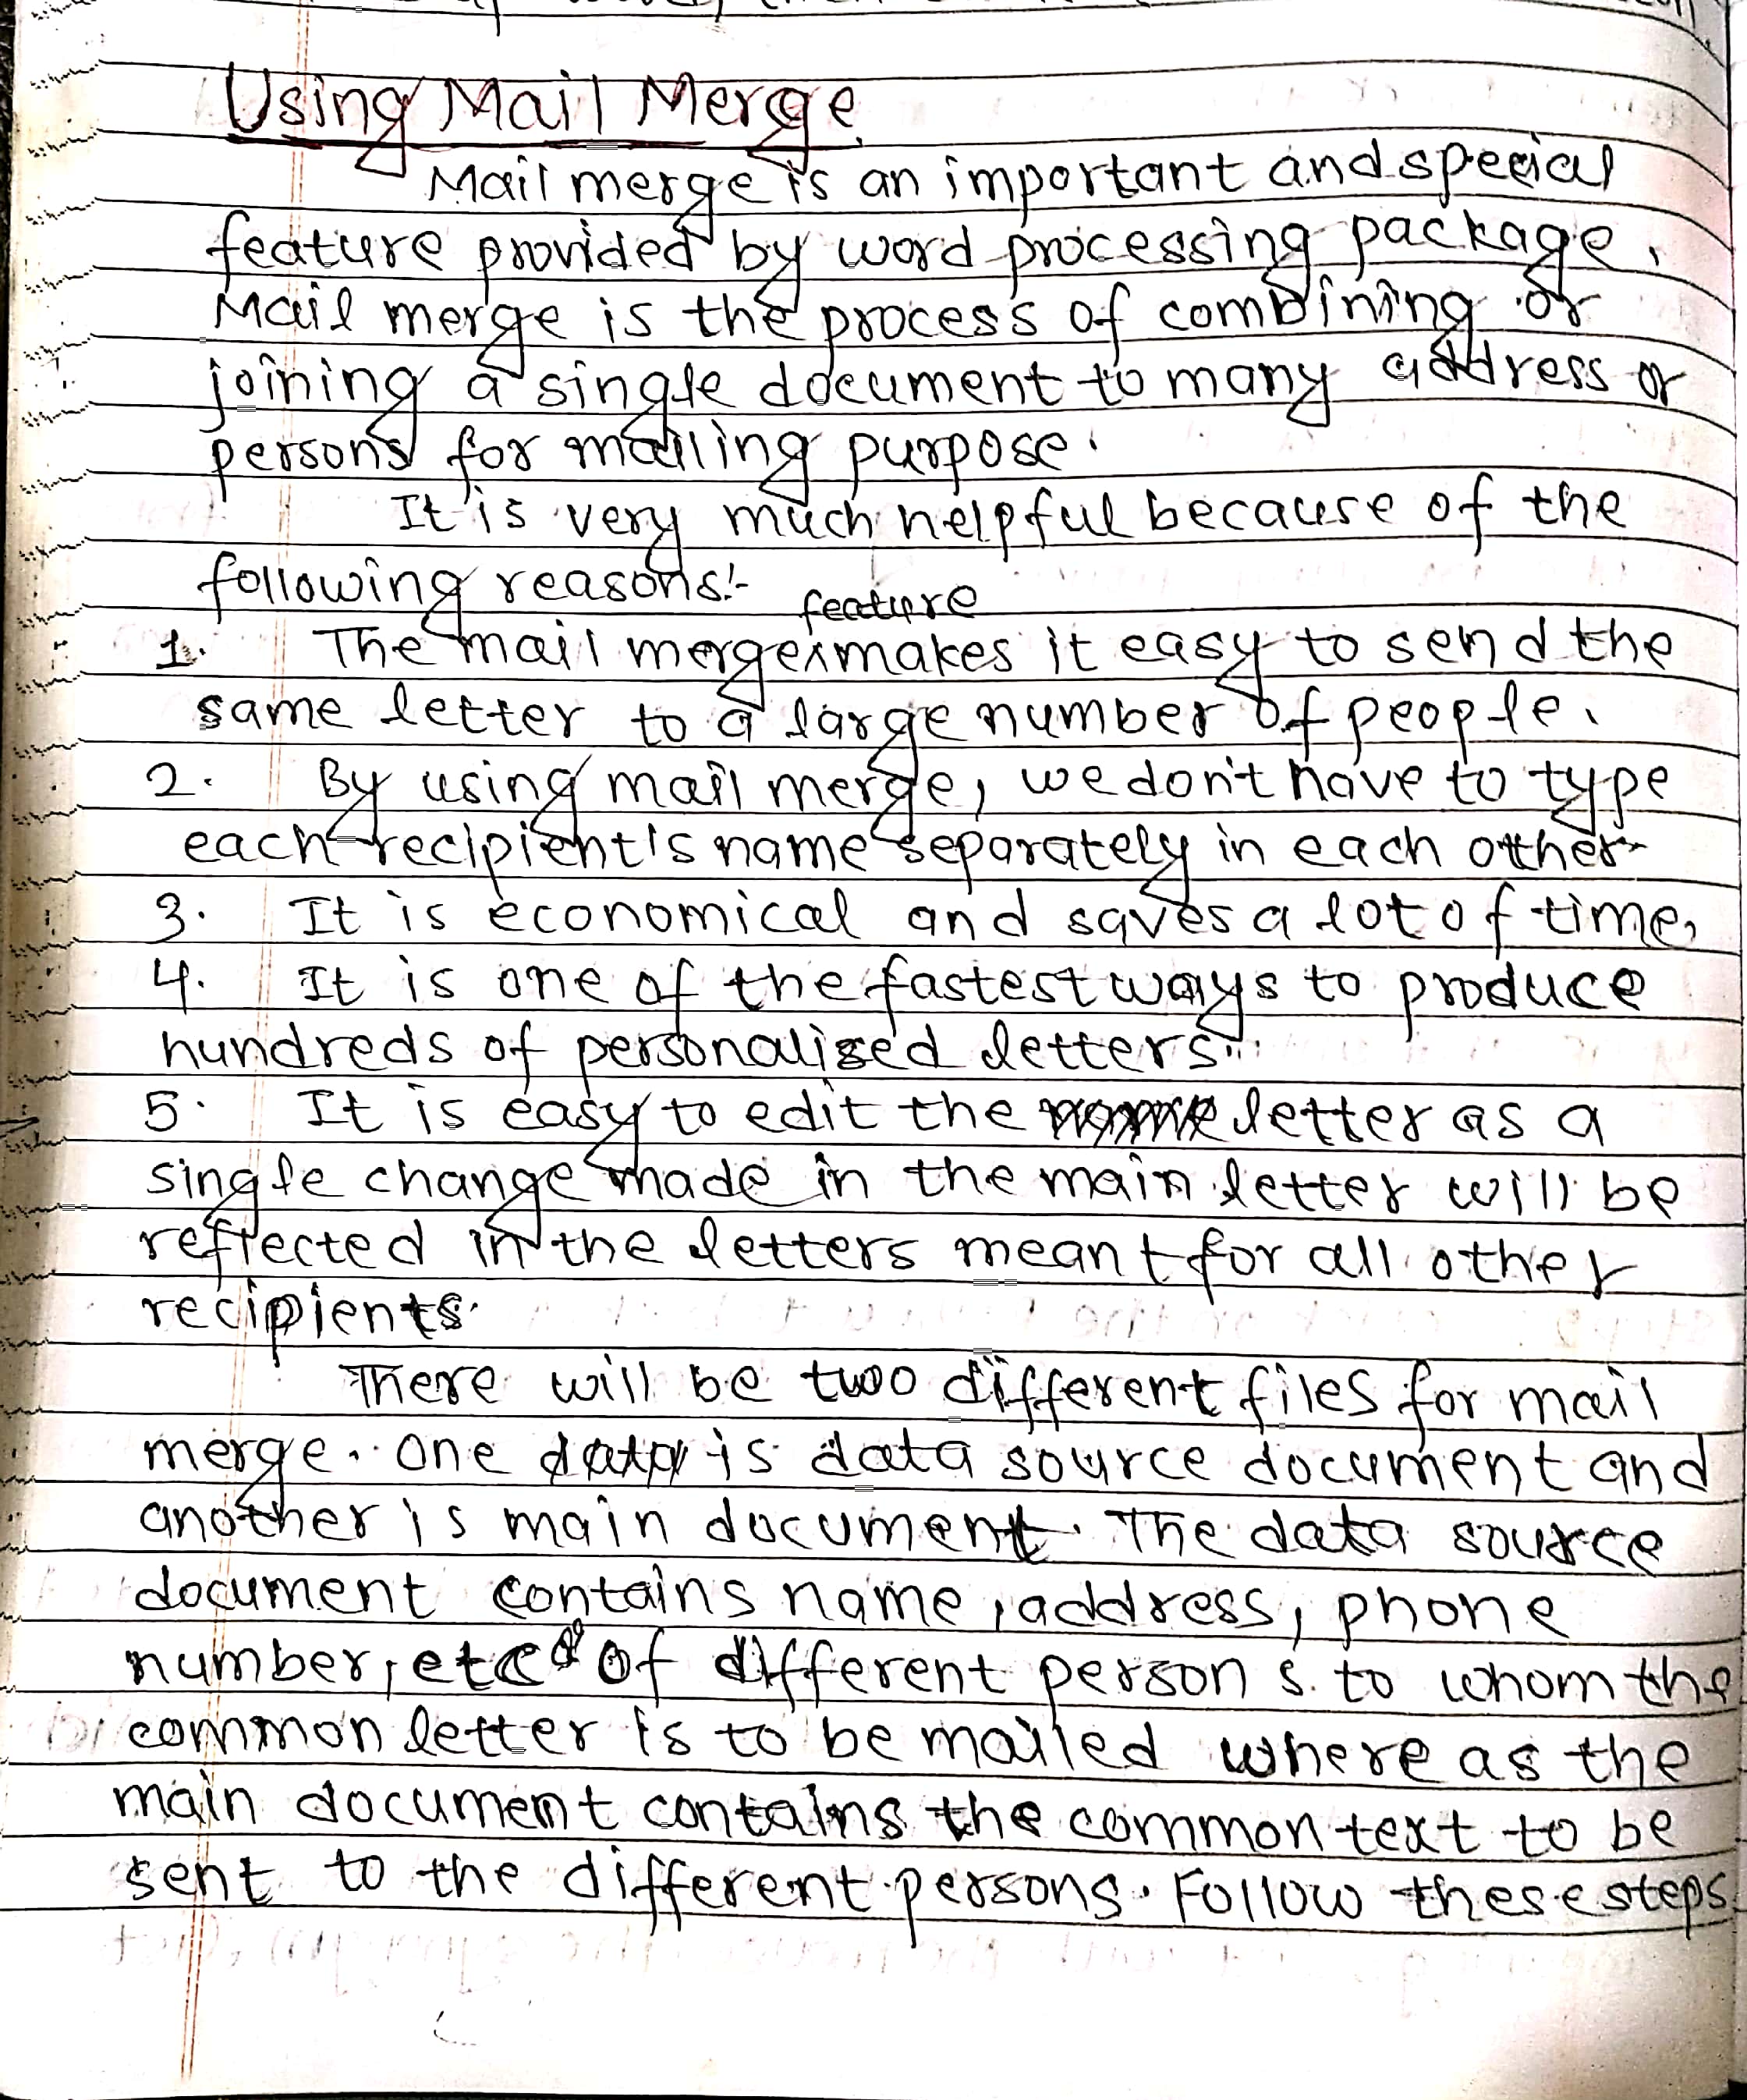 Using Mail Merge
Mail merge is an important and special
feature provided by word processing package.
Mail merge is the process of combining or
joining a single document to many address or
persons for mailing purpose.
It is very much helpful because of the
following reasons:-
feature
1. The mail merge^makes it easy to send the
same letter to a large number of people.
2. By using mail merge, we don't have to type
each recipient's name separately in each other
3. It is economical and saves a lot of time.
4. It is one of the fastest ways to produce
hundreds of personalized letters.
5. It is easy to edit the letter as a
single change made in the main letter will be
reflected in the letters meant for all other
recipients.
There will be two different files for mail
merge. One is data source document and
another is main document. The data source
document contains name, address, phone
number, etc of different persons to whom the
common letter is to be mailed where as the
main document contains the common text to be
sent to the different persons. Follow these steps